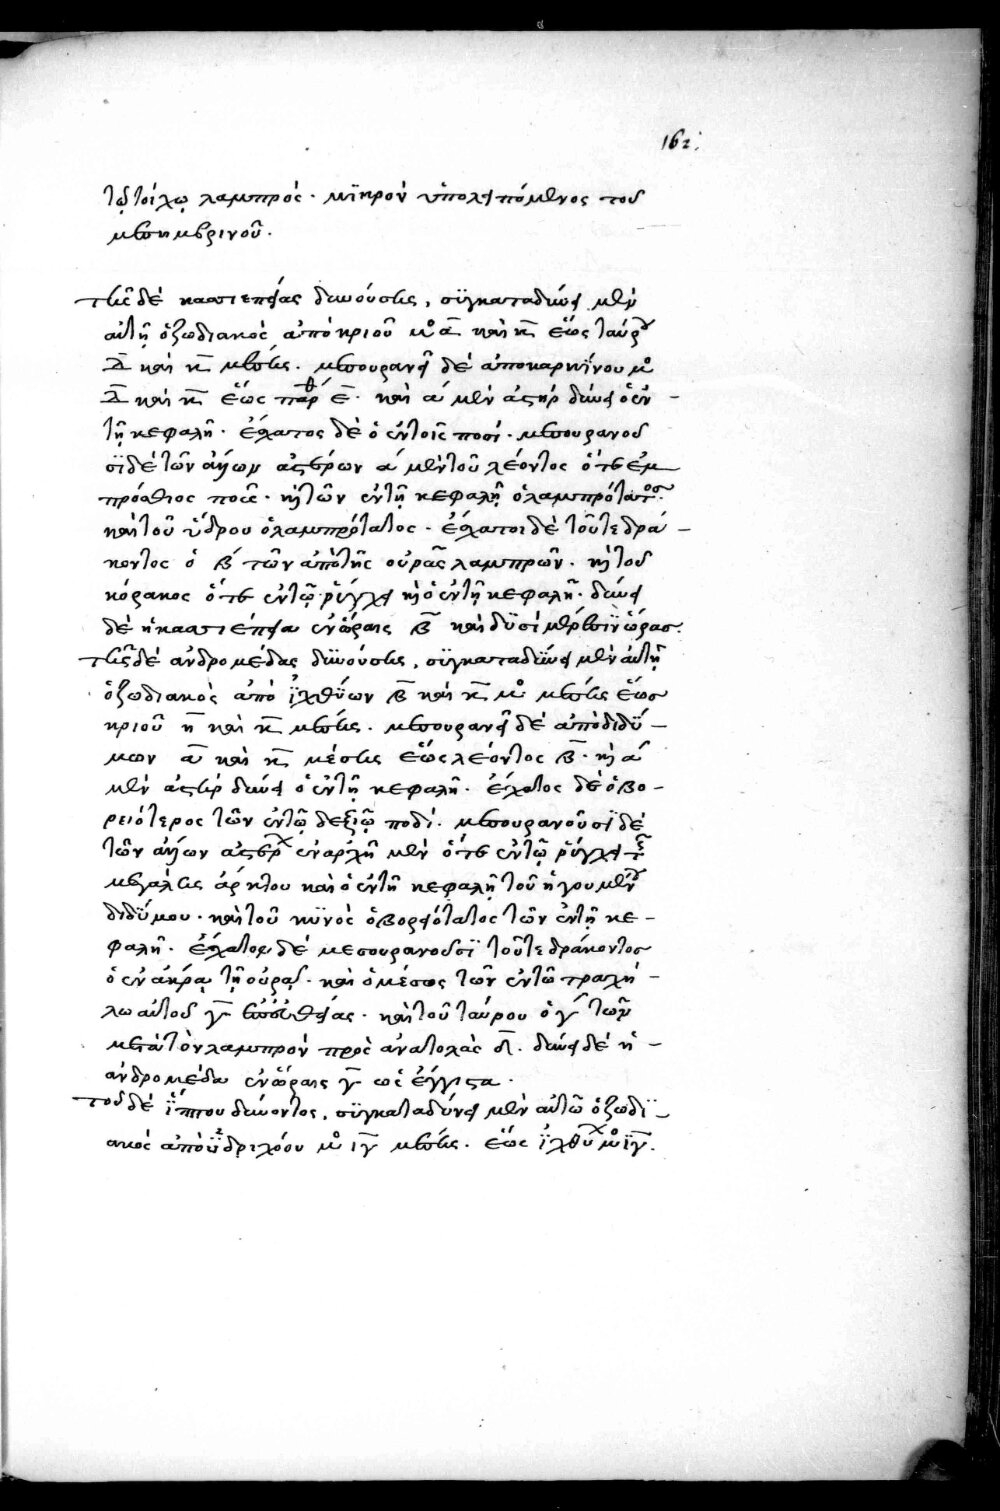 162.
τῷ τοίχῳ λαμπρός. μικρὸν ὑπολειπόμενος τοῦ
μεσημβρινοῦ.
τῆς δὲ κασσιεπείας δυνούσης, συγκαταδύνει μὲν
αὐτῇ ὁ ζωδιακὸς ἀπὸ κριοῦ μο α καὶ κ ἕως ταύρου
δ καὶ κ μέσης. μεσουρανεῖ δὲ ἀπὸ καρκίνου μο
δ καὶ κ ἕως παρθ ε. καὶ α μὲν ἀστὴρ δύνει ὁ ἐν
τῇ κεφαλῇ. ἔσχατος δὲ ὁ ἐν τοῖς ποσί. μεσουρανοῦ
σι δὲ τῶν ἄλλων ἀστέρων α μὲν τοῦ λέοντος ὅ τε ἐμ
πρόσθιος ποῦς. κὶ τῶν ἐν τῇ κεφαλῇ ὁ λαμπρότατος.
καὶ τοῦ ὕδρου ὁ λαμπρότατος. ἔσχατοι δὲ τοῦ τε δρά-
κοντος ὁ β τῶν ἀπὸ τῆς οὐρᾶς λαμπρῶν. κὶ τοῦ
κόρακος ὅ τε ἐν τῷ ῥύγχει κὶ ὁ ἐν τῇ κεφαλῇ. δύνει
δὲ ἡ κασσιέπεια ἐν ὥραις β καὶ δυσὶ μέρεσιν ὥρας.
τῆς δὲ ἀνδρομέδας δυνούσης, συγκαταδύνει μὲν αὐτῇ
ὁ ζωδιακὸς ἀπὸ ἰχθύων β καὶ κ μο μέσης ἕως
κριοῦ η καὶ κ μέσης. μεσουρανεῖ δὲ ἀπὸ διδύ-
μων α καὶ κ μέσης ἕως λέοντος β. κὶ α
μὲν ἀστὴρ δύνει ὁ ἐν τῇ κεφαλῇ. ἔσχατος δὲ ὁ βο-
ρειότερος τῶν ἐν τῷ δεξιῷ ποδί. μεσουρανοῦσι δὲ
τῶν ἄλλων ἀστέρ ἐν ἀρχῇ μὲν ὅ τε ἐν τῷ ῥύγχει τῆς
μεγάλης ἄρκτου καὶ ὁ ἐν τῇ κεφαλῇ τοῦ ἡγουμένου
διδύμου. καὶ τοῦ κυνὸς ὁ βορειότατος τῶν ἐν τῇ κε-
φαλῇ. ἔσχατοι δὲ μεσουρανοῦσι τοῦ τε δράκοντος
ὁ ἐν ἄκρᾳ τῇ οὐρᾷ. καὶ ὁ μέσος τῶν ἐν τῷ τραχή-
λω αὐτοῦ γ ἐπ' εὐθείας. καὶ τοῦ ταύρου ὁ γ τῶν
μετὰ τὸν λαμπρὸν πρὸς ἀνατολὰς δ. δύνει δὲ ἡ -
ἀνδρομέδα ἐν ὥραις γ ὡς ἔγγιστα.
τοῦ δὲ ἵππου δύνοντος, συγκαταδύνει μὲν αὐτῷ ὁ ζωδι-
ακὸς ἀπὸ ὑδριχόου μο ιγ μέσης. ἕως ἰχθύ μο ιγ.